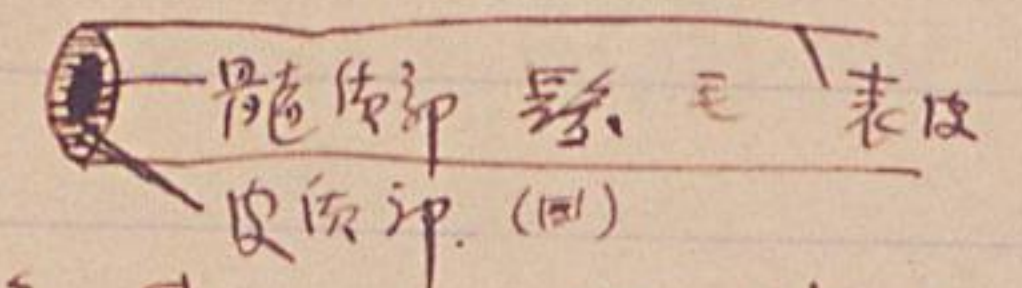 髓质部 髮毛 表皮
皮质部. (圖)